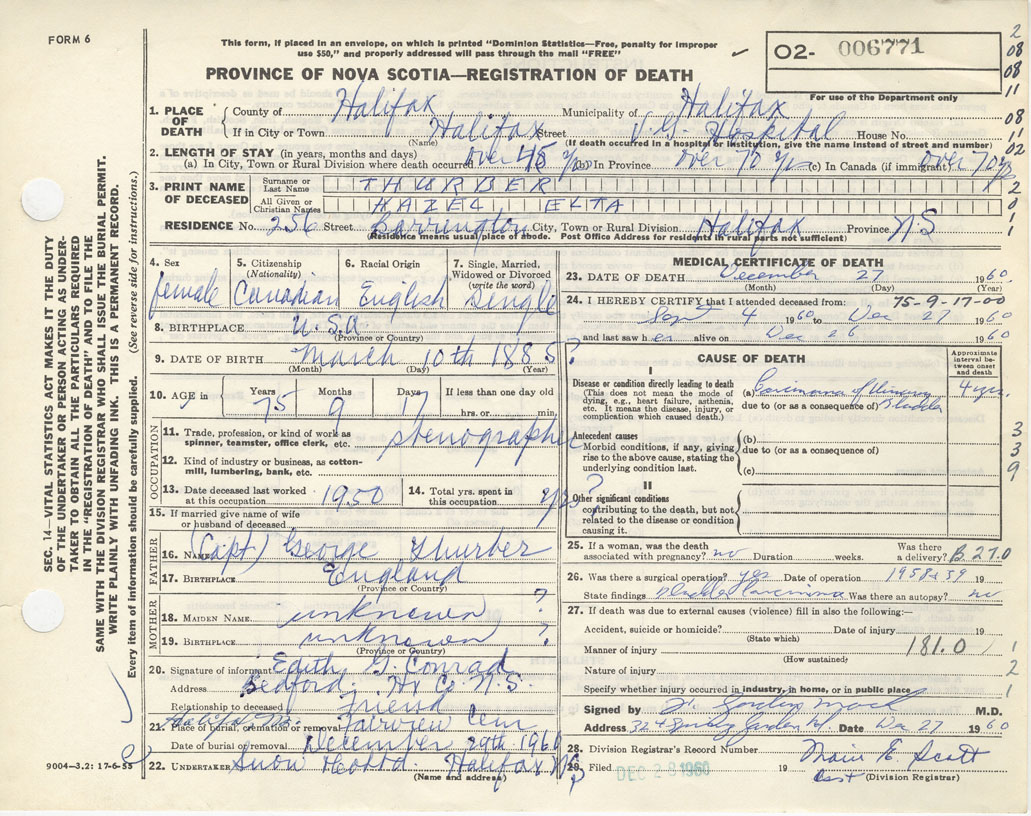 FORM 6
This form, if placed in an envelope, on which is printed "Dominion Statistics—Free, penalty for improper
use $50," and properly addressed will pass through the mail "FREE"
O2- 006771
PROVINCE OF NOVA SCOTIA—REGISTRATION OF DEATH
For use of the Department only
2
08
08
11
08
11
02
2
0
1
1
1. PLACE OF DEATH
County of Halifax Municipality of Halifax
If in City or Town Halifax Street V.G. Hospital House No.
(Name) (If death occurred in a hospital or institution, give the name instead of street and number)
2. LENGTH OF STAY (in years, months and days)
(a) In City, Town or Rural Division where death occurred over 45 yrs (b) In Province over 70 yrs (c) In Canada (if immigrant) over 70 yrs
3. PRINT NAME OF DECEASED
Surname or Last Name THURBER
All Given or Christian Names HAZEL ELTA
RESIDENCE No. 256 Street Barrington City, Town or Rural Division Halifax Province NS
(Residence means usual place of abode. Post Office Address for residents in rural parts not sufficient)
4. Sex female
5. Citizenship (Nationality) Canadian
6. Racial Origin English
7. Single, Married, Widowed or Divorced (write the word) Single
8. BIRTHPLACE U.S.A
(Province or Country)
9. DATE OF BIRTH March 10th 1885 ?
(Month) (Day) (Year)
10. AGE in Years 75 Months 9 Days 17 If less than one day old hrs. or min.
OCCUPATION
11. Trade, profession, or kind of work as spinner, teamster, office clerk, etc. stenographer
12. Kind of industry or business, as cotton-mill, lumbering, bank, etc.
13. Date deceased last worked at this occupation 1950
14. Total yrs. spent in this occupation yrs?
15. If married give name of wife or husband of deceased
FATHER
16. NAME (Capt) George Thurber
17. BIRTHPLACE England
(Province or Country)
MOTHER
18. MAIDEN NAME unknown ?
19. BIRTHPLACE unknown ?
(Province or Country)
20. Signature of informant Edith G. Conrad
Address Bedford, Hx Co. N.S.
Relationship to deceased Friend
21. Place of burial, cremation or removal Halifax NS. Fairview Cem
Date of burial or removal December 29th 1960
22. UNDERTAKER Snow Halifax NS
(Name and address)
9004-3.2: 17-6-55
MEDICAL CERTIFICATE OF DEATH
23. DATE OF DEATH December 27 1960
(Month) (Day) (Year)
24. I HEREBY CERTIFY that I attended deceased from: 75-9-17-00
Sept 4 1960 to Dec 27 1960
and last saw her alive on Dec 26 1960
CAUSE OF DEATH
Approximate interval between onset and death
I
Disease or condition directly leading to death (This does not mean the mode of dying, e.g., heart failure, asthenia, etc. It means the disease, injury, or complication which caused death.)
(a) Carcinoma of Urinary Bladder 4 yrs.
due to (or as a consequence of)
Antecedent causes
Morbid conditions, if any, giving rise to the above cause, stating the underlying condition last.
(b)
due to (or as a consequence of)
(c)
II
Other significant conditions contributing to the death, but not related to the disease or condition causing it.
3
3
9
25. If a woman, was the death associated with pregnancy? no Duration weeks. Was there a delivery? B 27.0
26. Was there a surgical operation? yes Date of operation 1958 & 59 19
State findings Bladder Carcinoma Was there an autopsy? no
27. If death was due to external causes (violence) fill in also the following:—
Accident, suicide or homicide? Date of injury 19
(State which)
Manner of injury 181.0 1
(How sustained)
Nature of injury 2
Specify whether injury occurred in industry, in home, or in public place 1
Signed by Gordon Mack M.D.
Address 324 Spring Garden Rd Date Dec 27 1960
28. Division Registrar's Record Number
29. Filed DEC 28 1960 19 Marie E. Scott
(Division Registrar)
SEC. 14—VITAL STATISTICS ACT MAKES IT THE DUTY
OF THE UNDERTAKER OR PERSON ACTING AS UNDER-
TAKER TO OBTAIN ALL THE PARTICULARS REQUIRED
IN THE "REGISTRATION OF DEATH" AND TO FILE THE
SAME WITH THE DIVISION REGISTRAR WHO SHALL ISSUE THE BURIAL PERMIT.
WRITE PLAINLY WITH UNFADING INK. THIS IS A PERMANENT RECORD.
Every item of information should be carefully supplied. (See reverse side for instructions.)